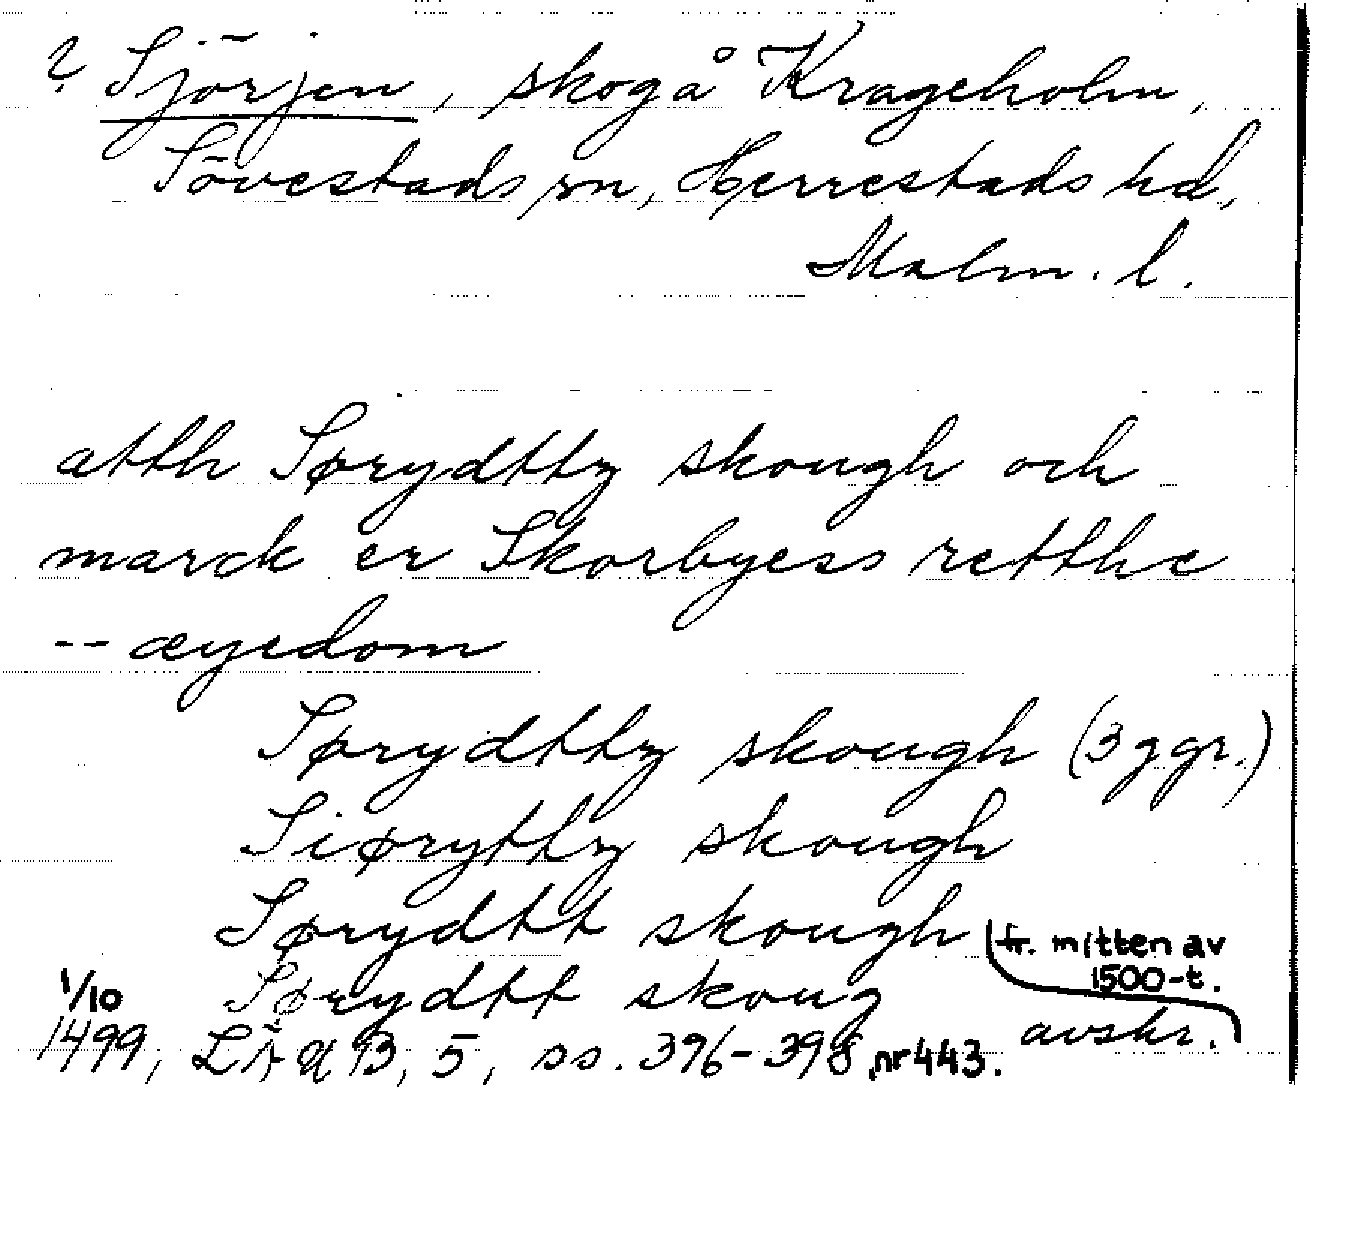 ? Sjörjen, skog å Krageholm,
Sövestads sn, Herrestads hd,
Malm. l.
atth Sørydttz skough och
marck er Skorbyess retthe
-- æyedom
Sørydttz skough (3 ggr.)
Siøryttz skough
Sørydtt skough fr. mitten av
1500-t.
1/10 Sørydtt skoug avskr.
1499, LÄUB, 5, ss. 396-398, nr 443.